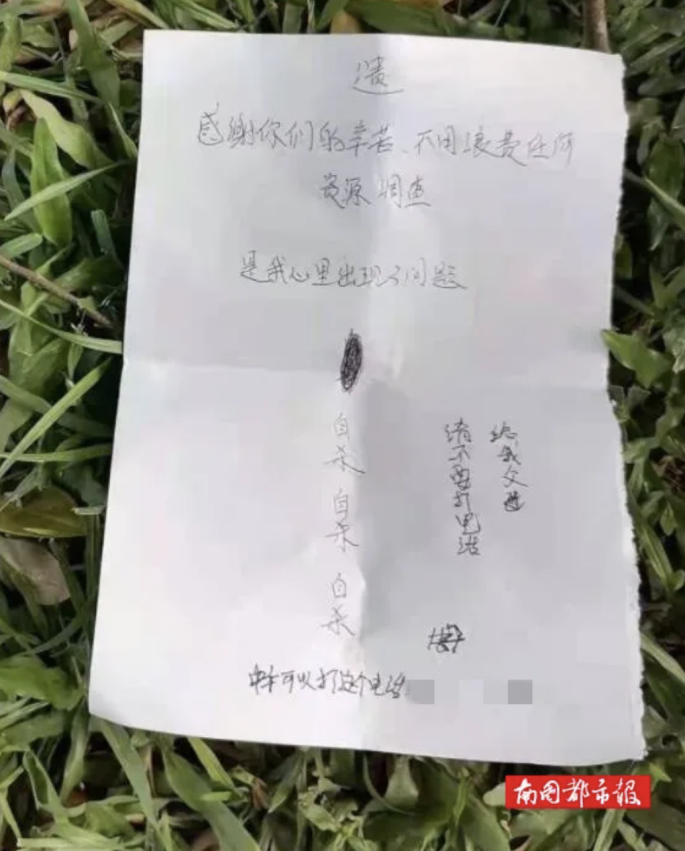 遗
感谢你们的辛苦、不用浪费任何
资源调查
是我心里出现了问题
自杀
自杀
自杀
请不要打电话
给我父母
可以打这个电话
南国都市报